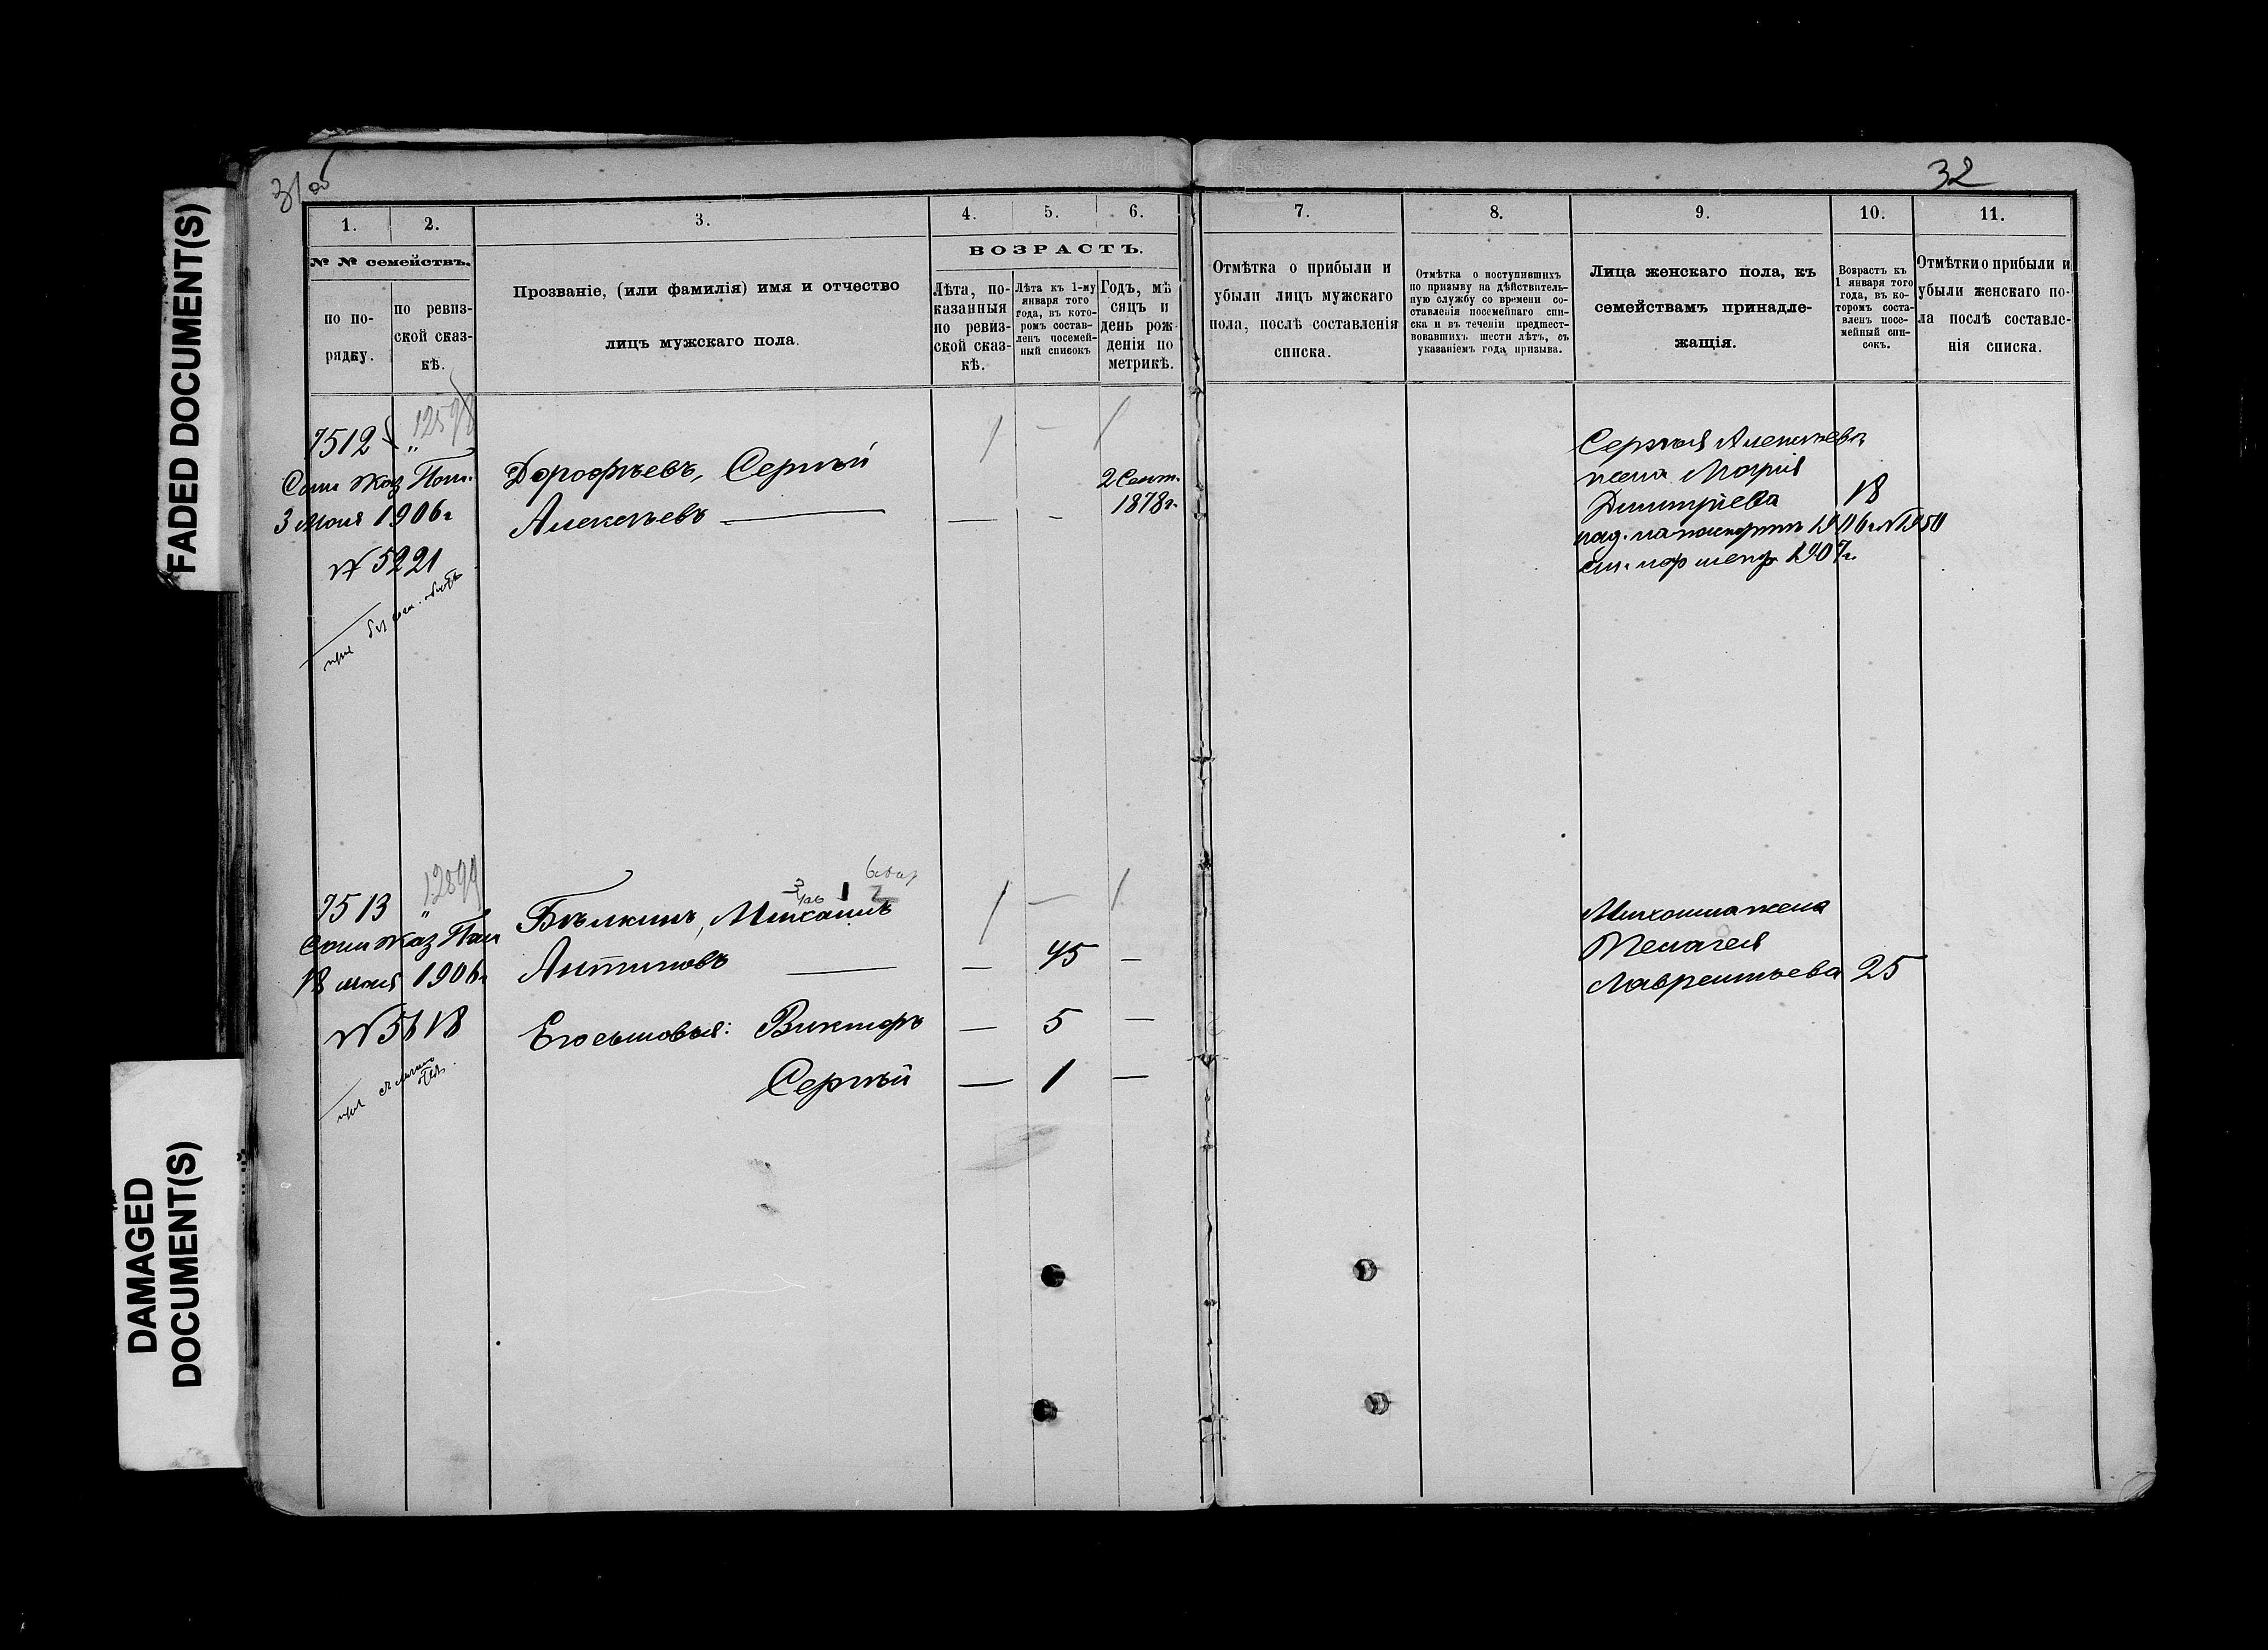 FADED DOCUMENT(S)
DAMAGED
DOCUMENT(S)
31 об
32
1.
2.
3.
4.
5.
6.
7.
8.
9.
10.
11.
№ № семействъ.
по по-
рядку.
по ревиз-
ской сказ-
кѣ.
Прозваніе, (или фамилія) имя и отчество
лицъ мужскаго пола.
ВОЗРАСТЪ.
Лѣта, по-
казанныя
по ревиз-
ской сказ-
кѣ.
Лѣта къ 1-му
января того
года, въ кото-
ромъ состав-
ленъ посемей-
ный списокъ
Годъ, мѣ
сяцъ и
день рож-
денія по
метрикѣ.
Отмѣтка о прибыли и
убыли лицъ мужскаго
пола, послѣ составленія
списка.
Отмѣтка о поступившихъ
по призыву на дѣйствитель-
ную службу со времени со-
ставленія посемейнаго спи-
ска и въ теченіи предшест-
вовавшихъ шести лѣтъ, съ
указаніемъ года призыва.
Лица женскаго пола, къ
семействамъ принадле-
жащія.
Возрастъ къ
1 января того
года, въ ко-
торомъ соста-
вленъ посе-
мейный спи-
сокъ.
Отмѣтки о прибыли и
убыли женскаго по-
ла послѣ составле-
нія списка.
7512 "
Каз Пал.
3 Мая 1906 г
№ 5221
Дорофѣевъ, Сергѣй
Алексѣевъ
— —
2 Сент.
1878 г.
Сергѣя Алексѣева
жена Марія
Димитріева 18
1907 г.
7513 "
12899
Каз Пал
18 мая 1906 г
№ 5618
Бѣлкинъ, Михаилъ
Антиповъ — 45 —
Его сыновья: Викторъ — 5 —
Сергѣй — 1 —
Михаила жена
Пелагея
Лаврентьева 25